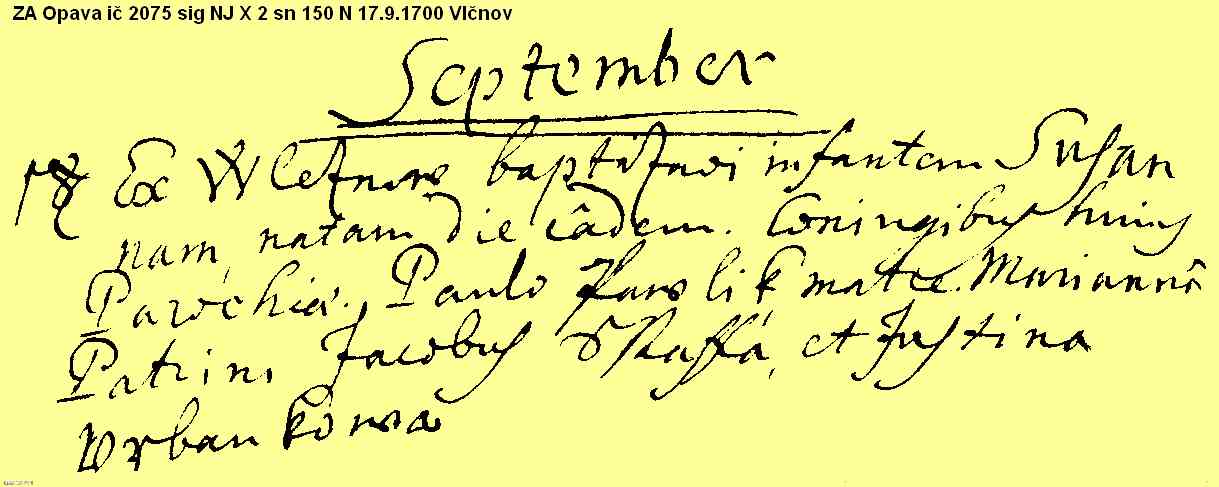 ZA Opava ič 2075 sig NJ X 2 sn 150 N 17.9.1700 Vlčnov
September
Ex baptisavi infantem Susan
nam, natam die eâdem. Coniugibus huius
Parochiæ. Paulo matre Mariannâ
Patrini Jacobus et Justina
Urbankowa